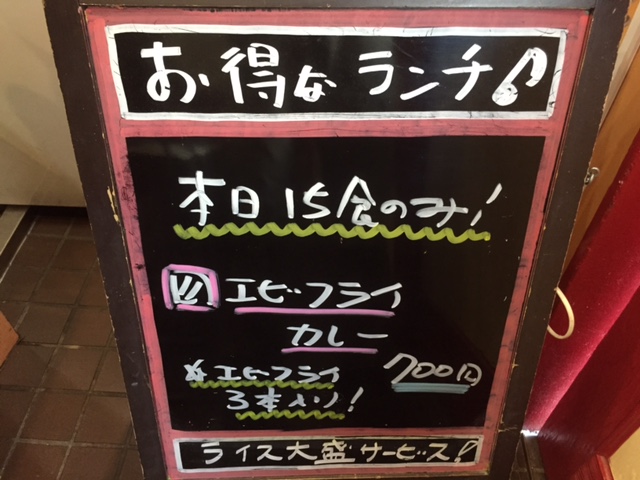 お得なランチ♪
本日15食のみ!
エビフライ
カレー
※エビフライ 700円
3本入り!
ライス大盛サービス!